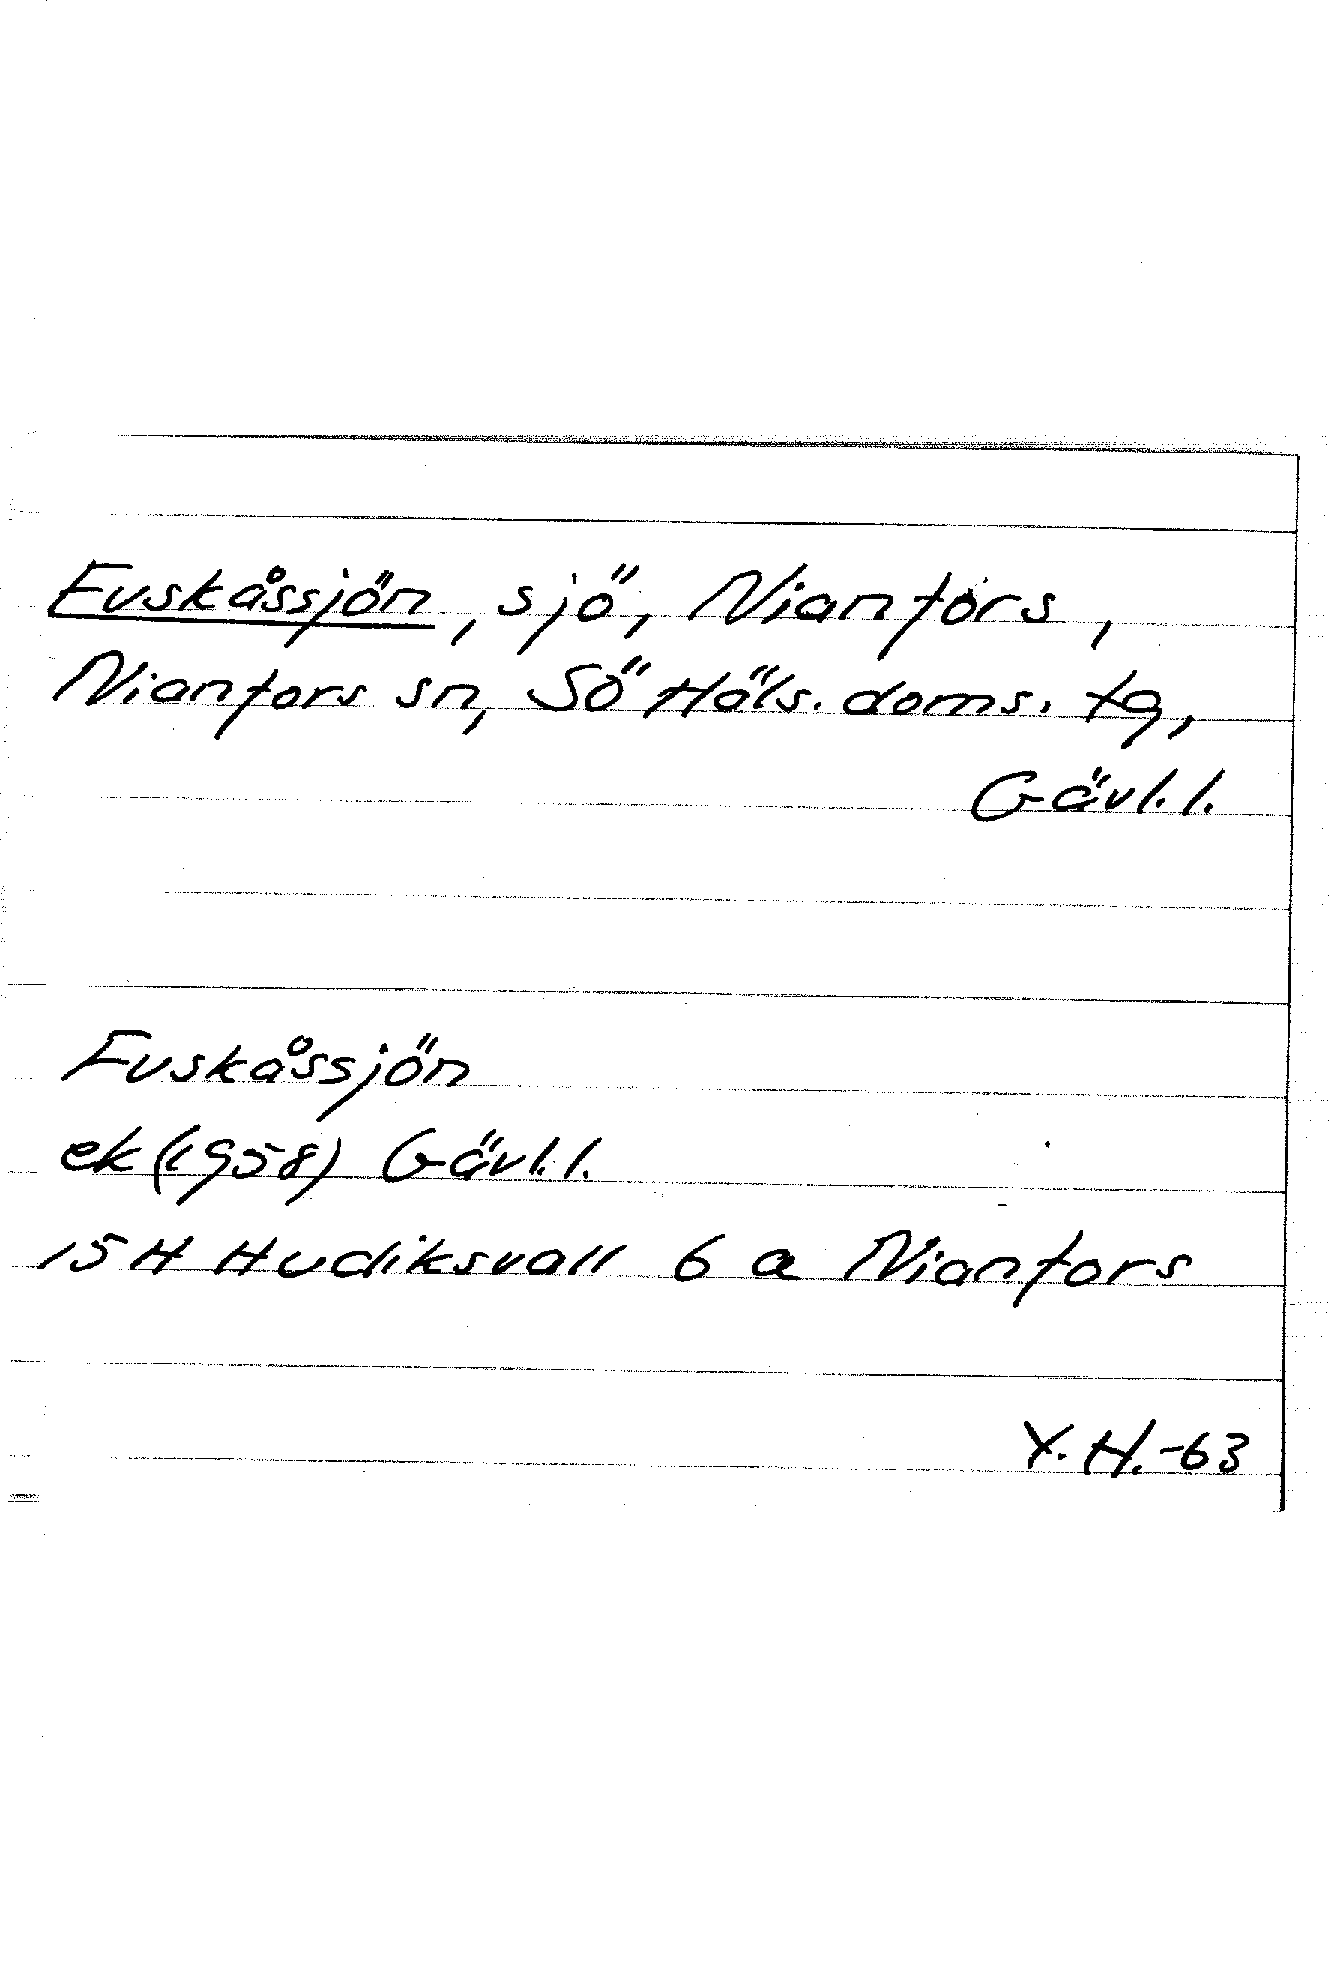 Fuskåssjön, sjö, Nianfors,
Nianfors sn, Sö Häls. doms. tg,
Gävl. l.
Fuskåssjön
ek (1958) Gävl. l.
15 H Hudiksvall 6 a Nianfors
Y. H. -63